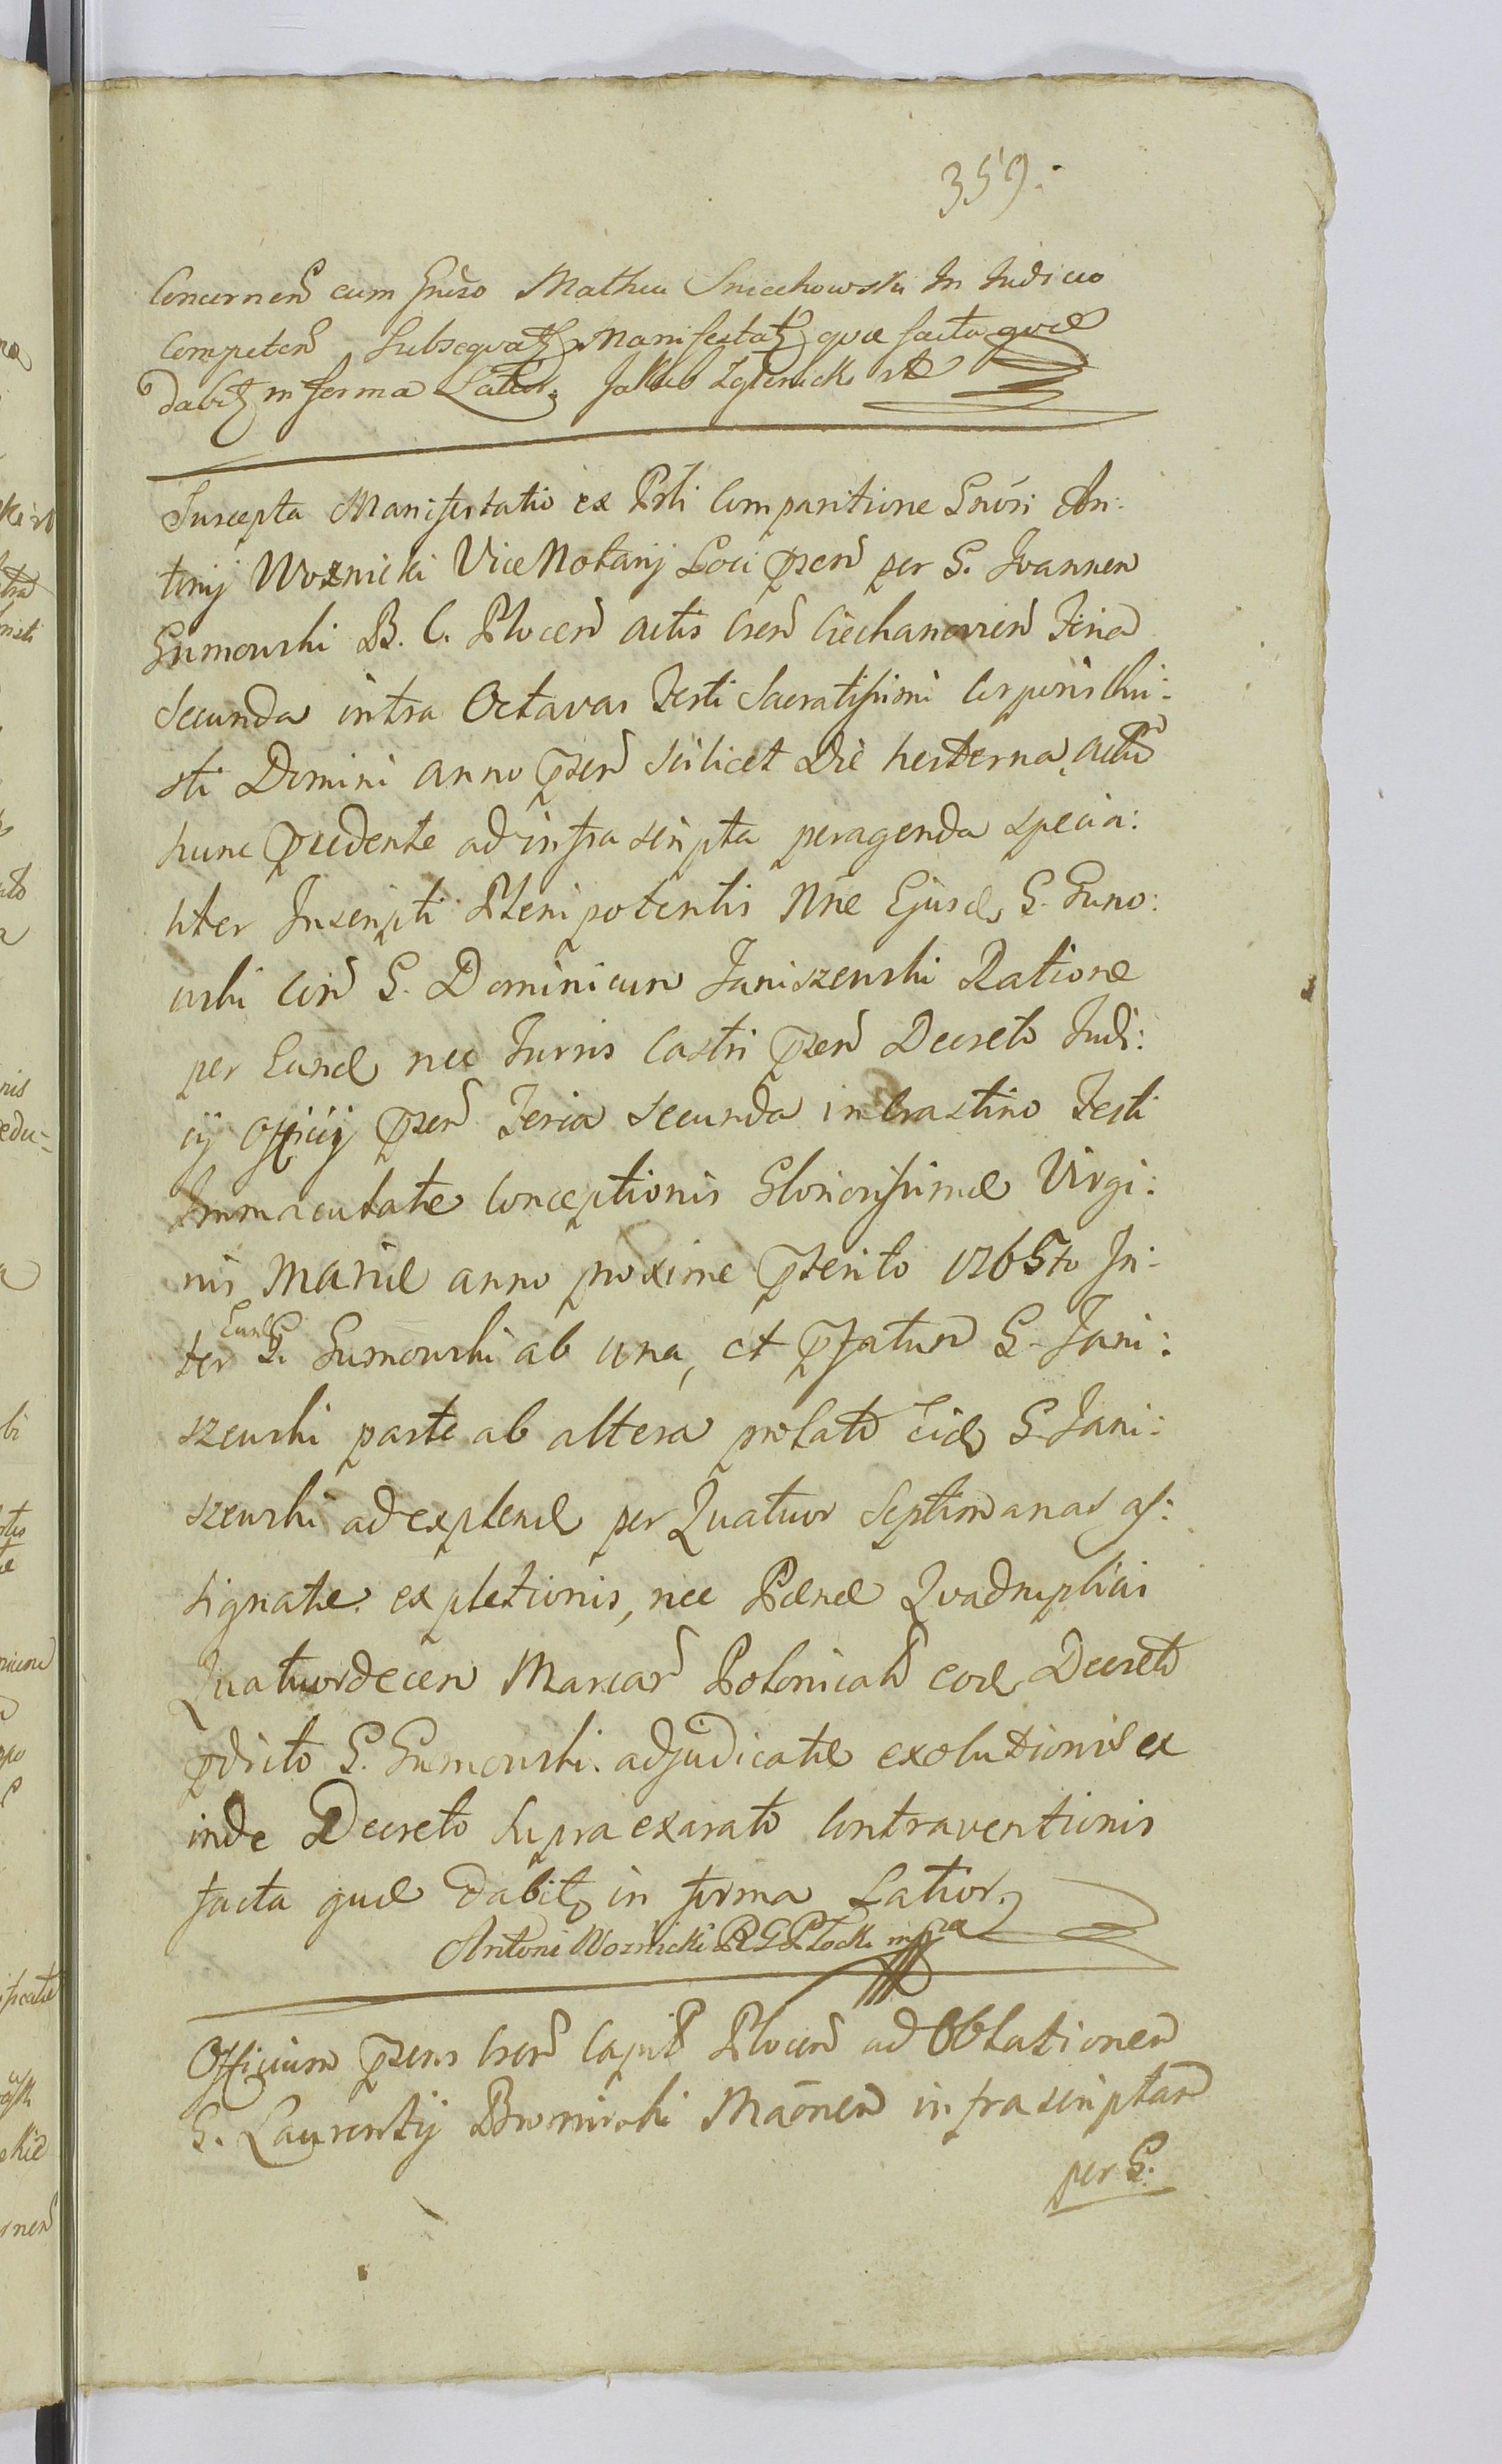 359.
Concernen cum Gnoso Matheu Sniechowski In Judicio
Competen Subsequatʒ Manifestatʒ quæ facta quæ
dabitʒ in forma Latior. Jakub Zglenicki
Suscepta Manifestatio ex Psti Comparitione Gnosi An:
tonij Woznicki Vice Notarij Loci pṡen per G. Joannem
Gumowski B. C. Plocen actis Cren Ciechanovien Feria
Secunda intra Octavas Festi Sacratissimi Corporis Chri:
sti Domini anno pṡen scilicet Die hesterna, actu
hunc pcedente ad infra scripta peragenda specia:
liter Inscripti Plenipotentis Nne Ejusd G. Gumo:
wski Con G. Dominicum Janiszewski Ratione
per Eund nec Turris Castri pṡen Decreto Judi:
cij Officij pṡen Feria Secunda in Crastino Festi
Immaculatæ Conceptionis Gloriosissimæ Virgi:
nis Mariæ anno proxime pterito 1765to In:
ter Eund G. Gumowski ab una, et pfatum G. Jani:
szewski parte ab altera prolato Eid G. Jani:
szewski ad explend per Quatuor Septimanas as:
signatæ expletionis, nec Pænæ Quadruplicis
Quatuordecem Marcar Polonicali eod Decreto
pdicto G. Gumowski adjudicatæ exolutionis ex
inde Decreto supra exarato Contraventionis
facta quæ dabitʒ in forma Latior.
Antoni Woznicki R G Płocki mp
Officium pṡens Cren Capit Plocen ad Oblationem
G. Laurentij Bromirski Maonem infrascriptam
per G.